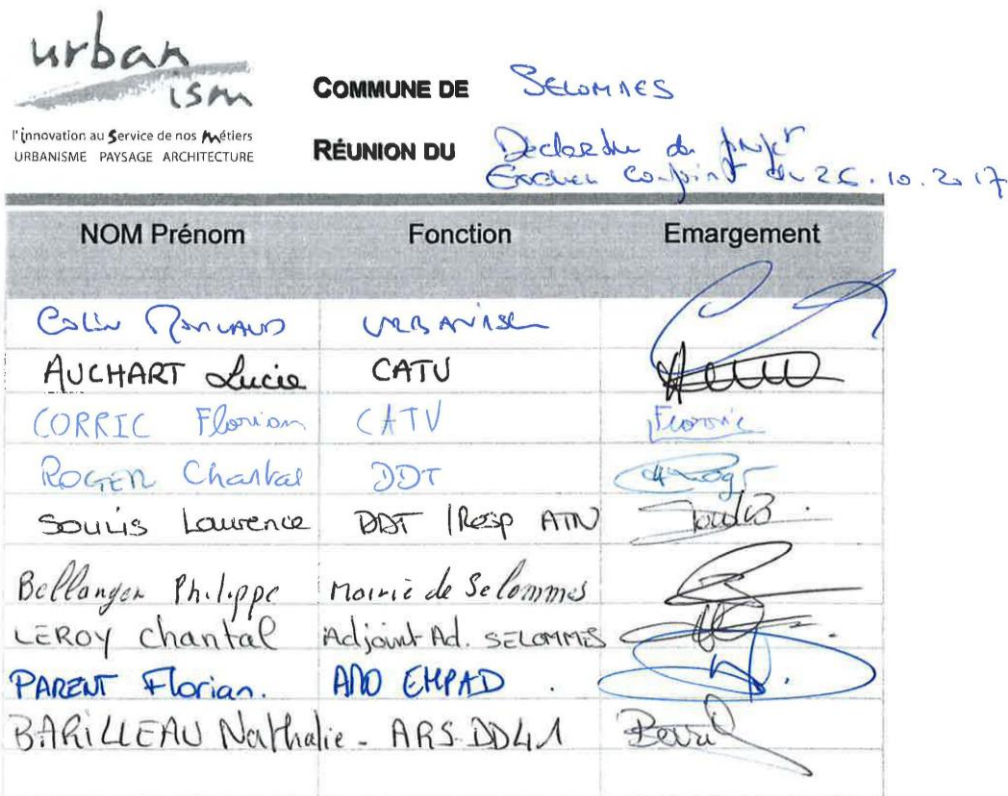 urban
ism
l'innovation au Service de nos Métiers
URBANISME PAYSAGE ARCHITECTURE
COMMUNE DE SELOMMES
RÉUNION DU Declaration de projet
Examen Conjoint du 26.10.2017
NOM Prénom Fonction Emargement
Colin URBANISTE
AUCHART Lucie CATV
CORRIC Florian CATV
ROGER Chantal DDT
SOULIS Laurence DDT / Resp ATN
Bellanger Philippe Mairie de Selommes
LEROY Chantal Adjoint Ad. SELOMMES
PARENT Florian. AMO EHPAD .
BARILLEAU Nathalie - ARS DD41